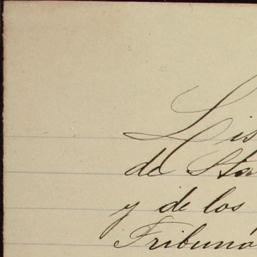 Lis
de Sta
y de los
Tribuna